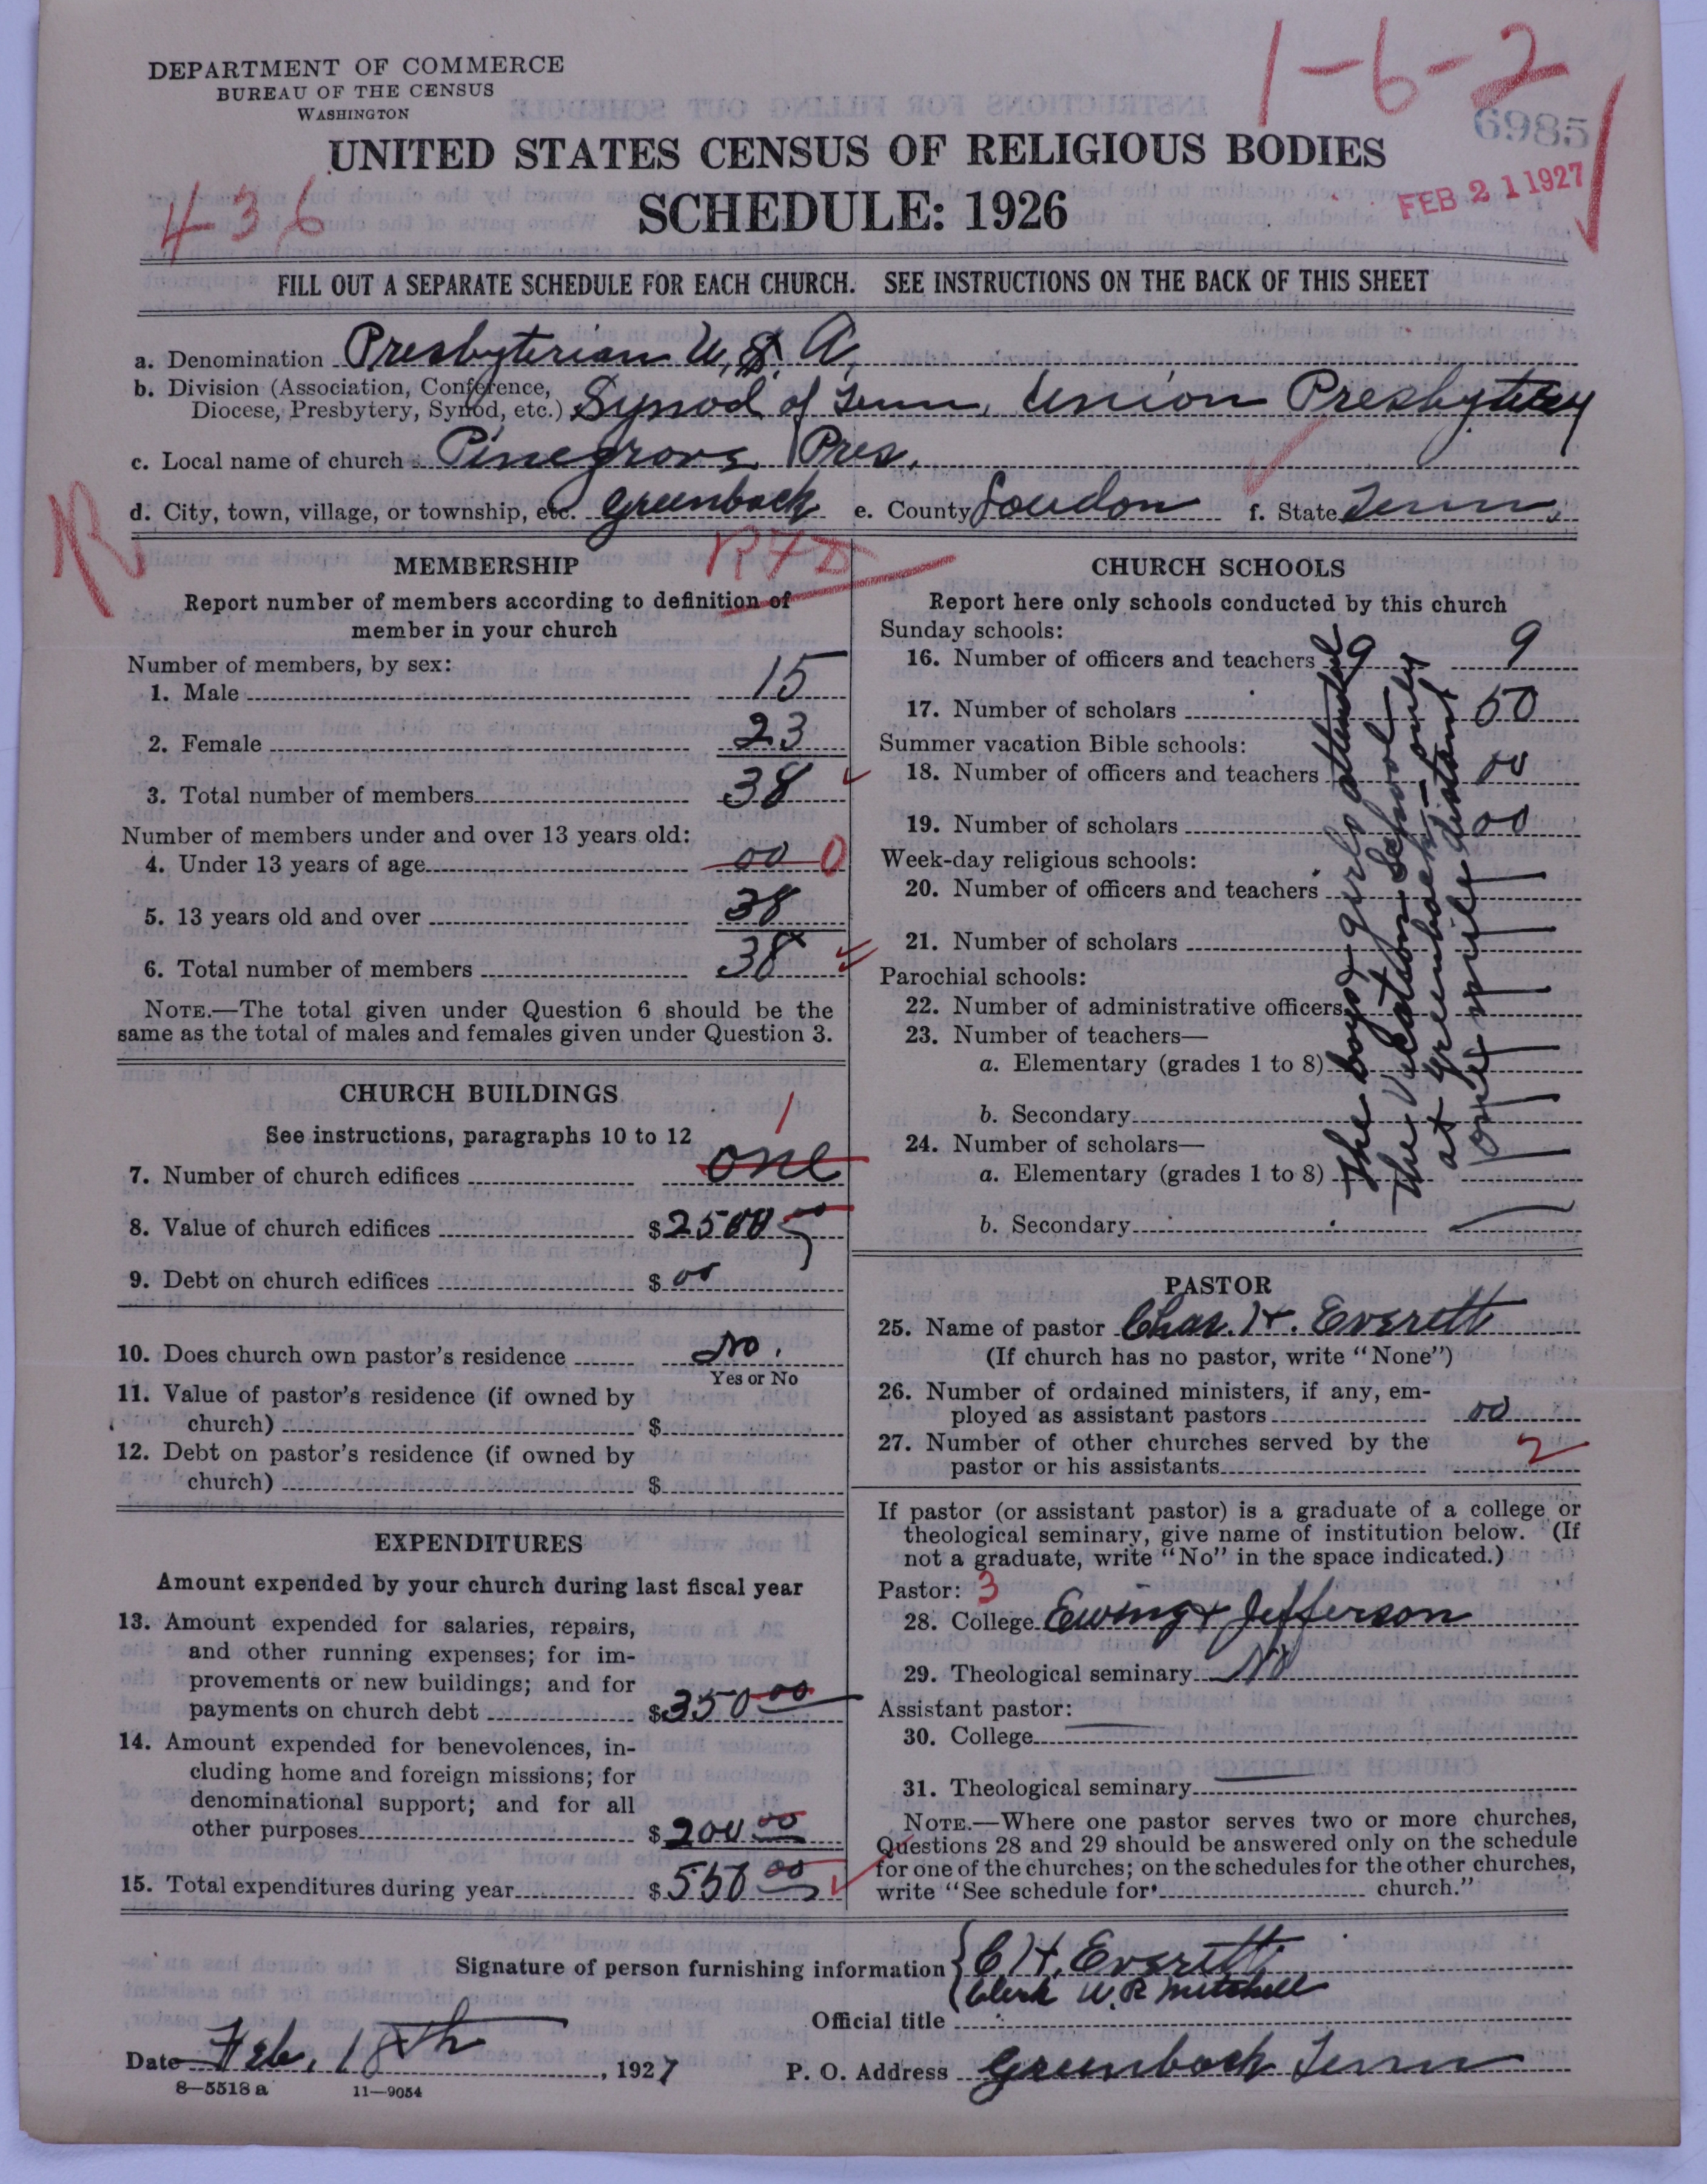 1-6-2
DEPARTMENT OF COMMERCE
BUREAU OF THE CENSUS
WASHINGTON
6985
UNITED STATES CENSUS OF RELIGIOUS BODIES
SCHEDULE: 1926
FEB 21 1927
436
FILL OUT A SEPARATE SCHEDULE FOR EACH CHURCH. SEE INSTRUCTIONS ON THE BACK OF THIS SHEET
a. Denomination Presbyterian U.S.A.
b. Division (Association, Conference,
Diocese, Presbytery, Synod, etc.) Synod of Tenn, Union Presbytery
c. Local name of church Pinegrove Pres.
d. City, town, village, or township, etc. Greenback e. County Loudon f. State Tenn,
R
RFD
MEMBERSHIP
Report number of members according to definition of
member in your church
Number of members, by sex:
1. Male 15
2. Female 23
3. Total number of members 38
Number of members under and over 13 years old:
4. Under 13 years of age 00 0
5. 13 years old and over 38
6. Total number of members 38
NOTE.—The total given under Question 6 should be the
same as the total of males and females given under Question 3.
CHURCH BUILDINGS
See instructions, paragraphs 10 to 12
1
7. Number of church edifices one
8. Value of church edifices $2500 00
9. Debt on church edifices $ 00
10. Does church own pastor's residence No.
Yes or No
11. Value of pastor's residence (if owned by
church) $
12. Debt on pastor's residence (if owned by
church) $
EXPENDITURES
Amount expended by your church during last fiscal year
13. Amount expended for salaries, repairs,
and other running expenses; for im-
provements or new buildings; and for
payments on church debt $350 00
14. Amount expended for benevolences, in-
cluding home and foreign missions; for
denominational support; and for all
other purposes $200 00
15. Total expenditures during year $550 00
CHURCH SCHOOLS
Report here only schools conducted by this church
Sunday schools:
16. Number of officers and teachers 9 9
17. Number of scholars 50
Summer vacation Bible schools:
18. Number of officers and teachers 00
19. Number of scholars 00
Week-day religious schools:
20. Number of officers and teachers
21. Number of scholars
Parochial schools:
22. Number of administrative officers
23. Number of teachers—
a. Elementary (grades 1 to 8)
b. Secondary
24. Number of scholars—
a. Elementary (grades 1 to 8)
b. Secondary
The boys & girls attended
the Vacation School
at Greenback - only
one mile distant
PASTOR
25. Name of pastor Chas. H. Everett
(If church has no pastor, write "None")
26. Number of ordained ministers, if any, em-
ployed as assistant pastors 00
27. Number of other churches served by the
pastor or his assistants 2
If pastor (or assistant pastor) is a graduate of a college or
theological seminary, give name of institution below. (If
not a graduate, write "No" in the space indicated.)
Pastor: 3
28. College Ewing & Jefferson
29. Theological seminary No
Assistant pastor:
30. College
31. Theological seminary
NOTE.—Where one pastor serves two or more churches,
Questions 28 and 29 should be answered only on the schedule
for one of the churches; on the schedules for the other churches,
write "See schedule for church."
Signature of person furnishing information C H. Everett
Clerk W. R Mitchell
Official title
Date Feb, 18th, 1927 P. O. Address Greenback Tenn
8—5518 a 11—9054